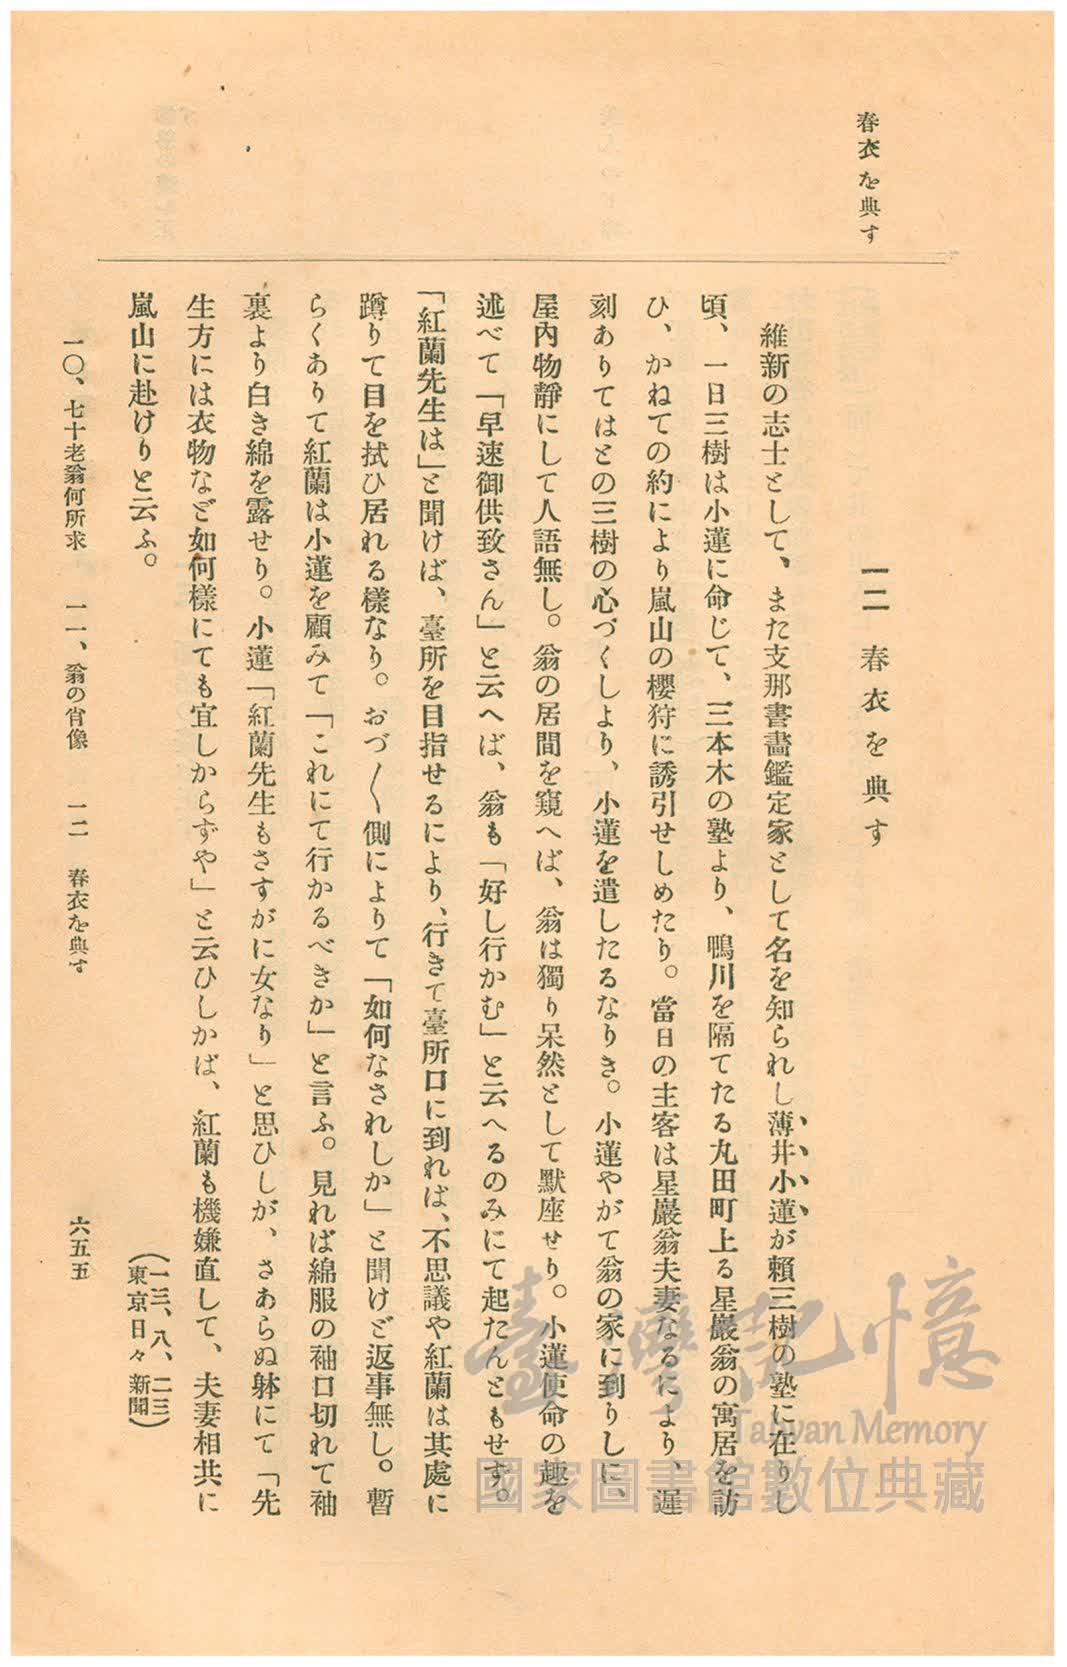 春衣を典す
一二　春衣を典す
維新の志士として、また支那書畵鑑定家として名を知られし薄井小蓮が賴三樹の塾に在りし
頃、一日三樹は小蓮に命じて、三本木の塾より、鴨川を隔てたる丸田町上る星巖翁の寓居を訪
ひ、かねての約により嵐山の櫻狩に誘引せしめたり。當日の主客は星巖翁夫妻なるにより、遲
刻ありてはとの三樹の心づくしより、小蓮を遣したるなりき。小蓮やがて翁の家に到りしに、
屋内物靜にして人語無し。翁の居間を窺へば、翁は獨り呆然として默座せり。小蓮使命の趣を
述べて「早速御供致さん」と云へば、翁も「好し行かむ」と云へるのみにて起たんともせず。
「紅蘭先生は」と聞けば、臺所を目指せるにより、行きて臺所口に到れば、不思議や紅蘭は其處に
蹲りて目を拭ひ居れる樣なり。おづ〱側によりて「如何なされしか」と聞けど返事無し。暫
らくありて紅蘭は小蓮を顧みて「これにて行かるべきか」と言ふ。見れば綿服の袖口切れて袖
裏より白き綿を露せり。小蓮「紅蘭先生もさすがに女なり」と思ひしが、さあらぬ躰にて「先
生方には衣物など如何樣にても宜しからずや」と云ひしかば、紅蘭も機嫌直して、夫妻相共に
嵐山に赴けりと云ふ。
（一三、八、二三
東京日々新聞）
一〇、七十老翁何所求　一一、翁の肖像　一二　春衣を典す
六五五
臺灣記憶
Taiwan Memory
國家圖書館數位典藏